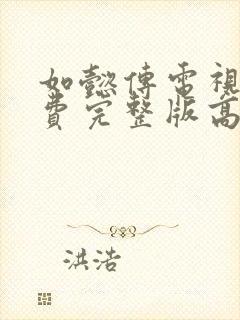 如懿傳電視
費完整版高
洪浩